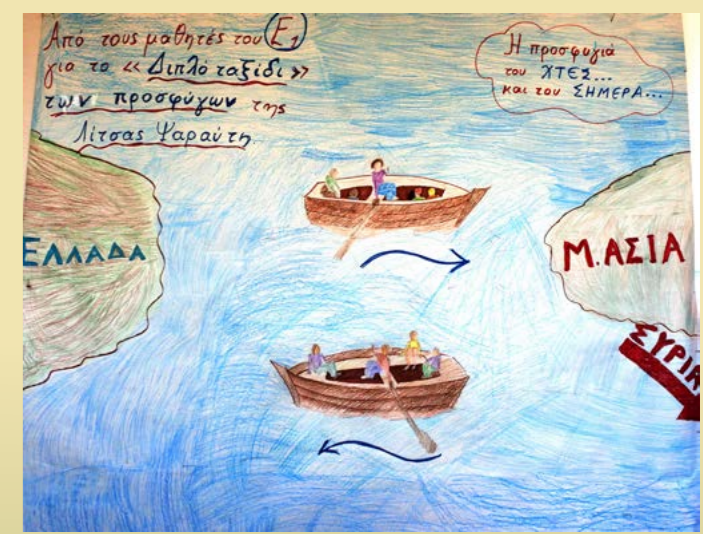 Από τους μαθητές του Ε1
για το «Διπλό ταξίδι»
των προσφύγων της
Λίτσας Ψαραύτη
Η προσφυγιά
του ΧΤΕΣ...
και του ΣΗΜΕΡΑ...
ΕΛΛΑΔΑ
Μ.ΑΣΙΑ
ΣΥΡΙΑ